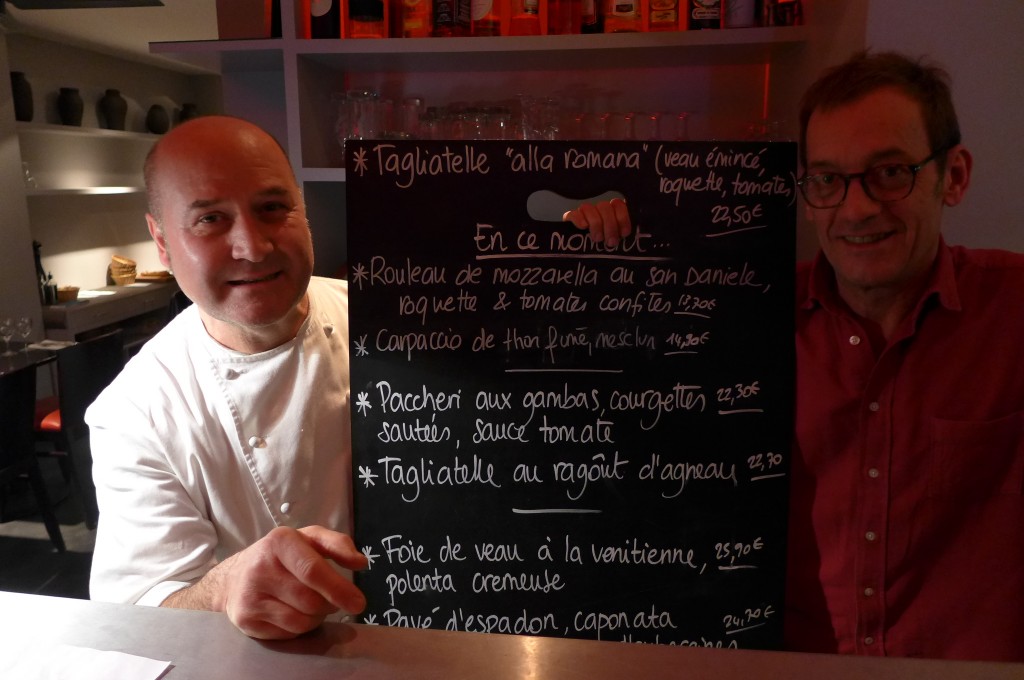 * Tagliatelle "alla romana" (veau émincé,
roquette, tomates)
22,50€
En ce moment...
* Rouleau de mozzarella au san Daniele,
roquette & tomates confites
* Carpaccio de thon fumé, mesclun 14,90€
* Paccheri aux gambas, courgettes 22,30€
sautées, sauce tomate
* Tagliatelle au ragoût d'agneau 22,70
* Foie de veau à la venitienne, 25,90€
polenta cremeuse
* Pavé d'espadon, caponata 24,70€